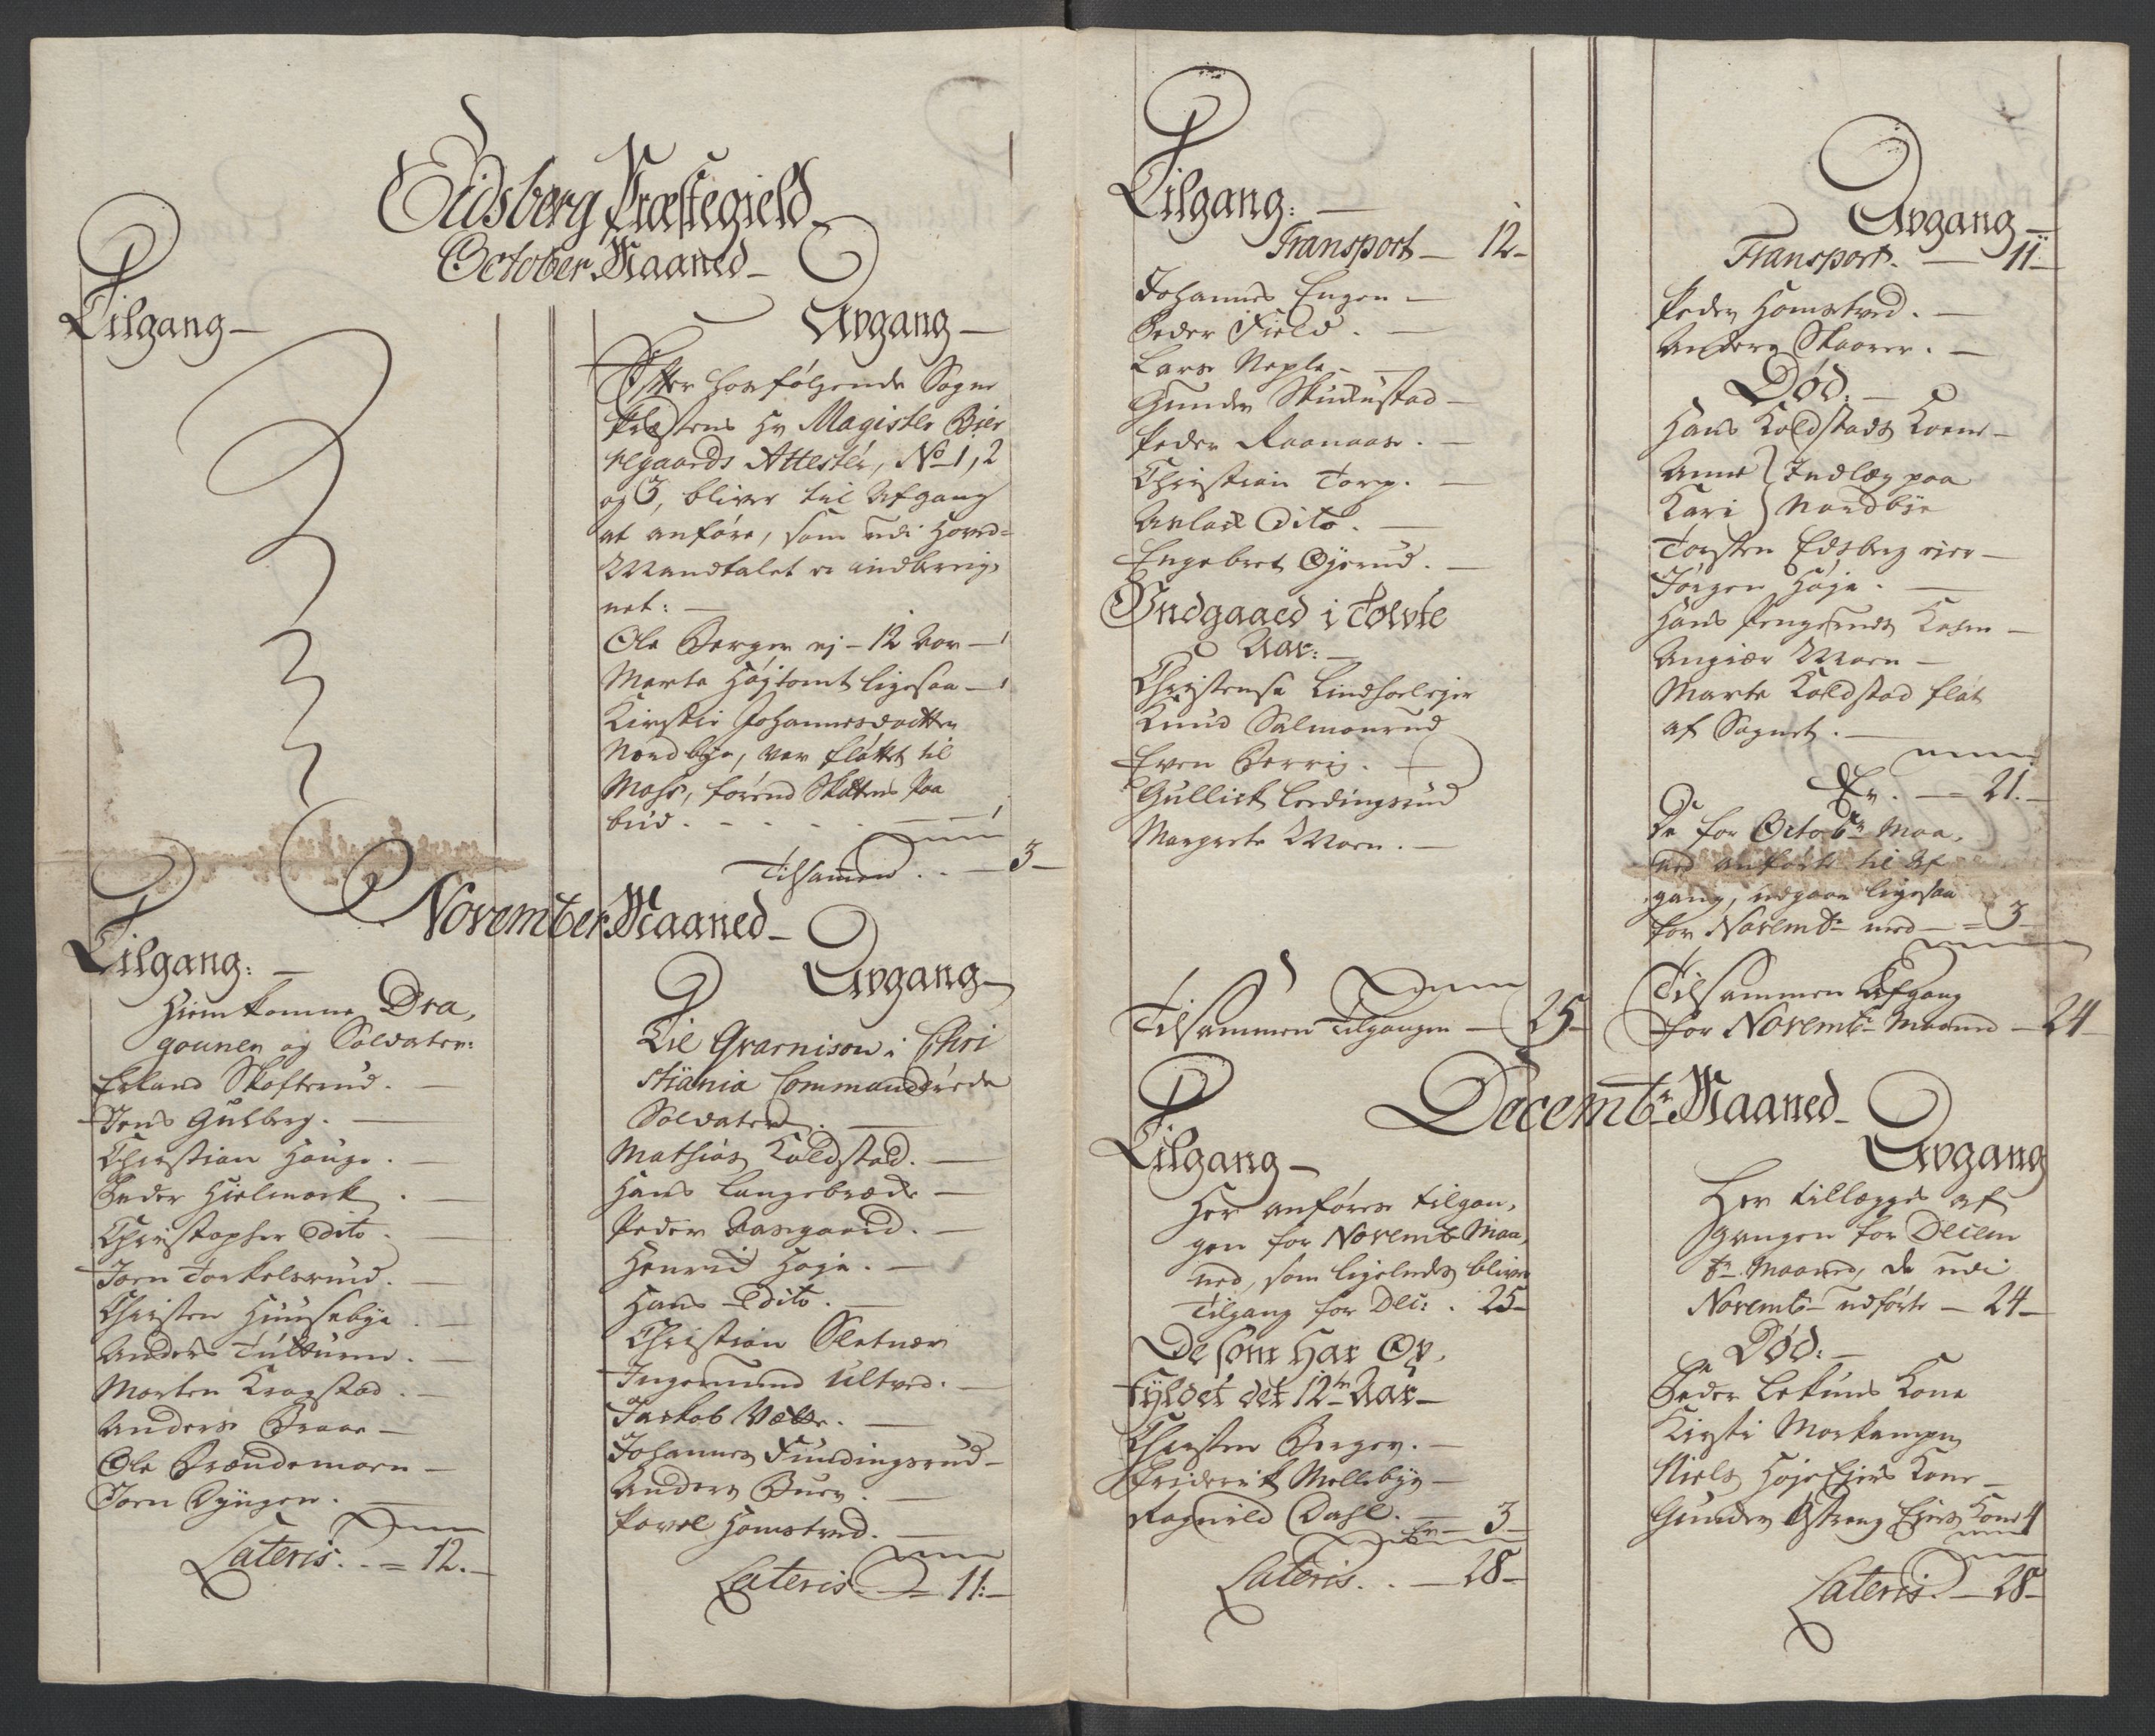 Eidsberg Præstegield
October Maaned
Tilgang
Afgang
Efter hosfølgende Sogne
Præstens Hr Magister Bier
regaards Attester, No 1, 2
og 3, bliver til Afgang
at anføre, som udi Hoved-
Mandtalet er indbereg-
net:
Ole Berger ej 12 Aar 1
Marte Højtomt ligesaa 1
Kirstie Johannesdatter
Nordbye, var fløttet til
Moss, førend Skattens Paa
bud 1
Tilsamen 3
November Maaned
Tilgang:
Hiemkomne Dra,
gouner og Soldater:
Erland Skofterud.
Jens Gulberg.
Christian Houge.
Peder Hielmark.
Christopher Dito.
Joen Torkelsrud.
Christen Huusebye.
Anders
Morten Kragstad.
Anders Braae
Ole Brændemoen
Joen Dyngen.
Lateris 12.
Afgang
Til Gvarnison i Chri
stiania Commanderede
Soldater.
Mathias Koldstad.
Hans Langebræde
Peder Aasgaard.
Henrid Høje.
Hans Dito.
Christian Sletner
Ingemund Ultved.
Jackob
Johannes Fundingsrud
Anders Buer.
Povel Homstved.
Lateris 11:
Tilgang:
Transport 12
Johannes Engen
Peder Field.
Lars Neple
Gunder Skudustad
Peder Raanaas.
Christian Torp.
Aslack Dito.
Engebret Gjerud.
Indgaaed i Tolvte
Aar:
Christense Lindhoelejer
Knud Salmonrud
Even Berrig.
Gullick Lerdingsrud
Margrete Moen.
Tilsammen Tilgangen 25
Afgang
Transport. 11
Peder Homstved.
Anders Skaarer.
Død:
Hans Koldstads Koene
Anne } Indlæg paa
Kari } Nordbye
Torsten Edsberg eier
Jørgen Høje.
Hans Pengerud Kone
Angier Moen
Marte Koldstad fløt
af Sognet.
Er. 21.
De for Octobr Maa,
ned anførte til Af
gang, udgaae ligesaa
for Novembr med 3
Tilsammen Afgang
for Novembr Maaned 24
Decembr Maaned
Tilgang
Her anføres Tilgan,
gen for Novembr Maa,
ned, som ligeledes bliver
Tilgang for Dec: 25
De som Har Op,
fyldet det 12te Aar
Christen Berger.
Friderick Mellebye
Ragnild Dahl.
Er 3
Lateris 28
Afgang
Her tillægges af
gangen for Decem
br Maaned, de udi
Novembr udførte 24
Død:
Peder Lekums Kone
Kirsti Morkampen
Niels Høje Ejers Kone
Gunder Østreng Ejers Kone 4
Lateris 28